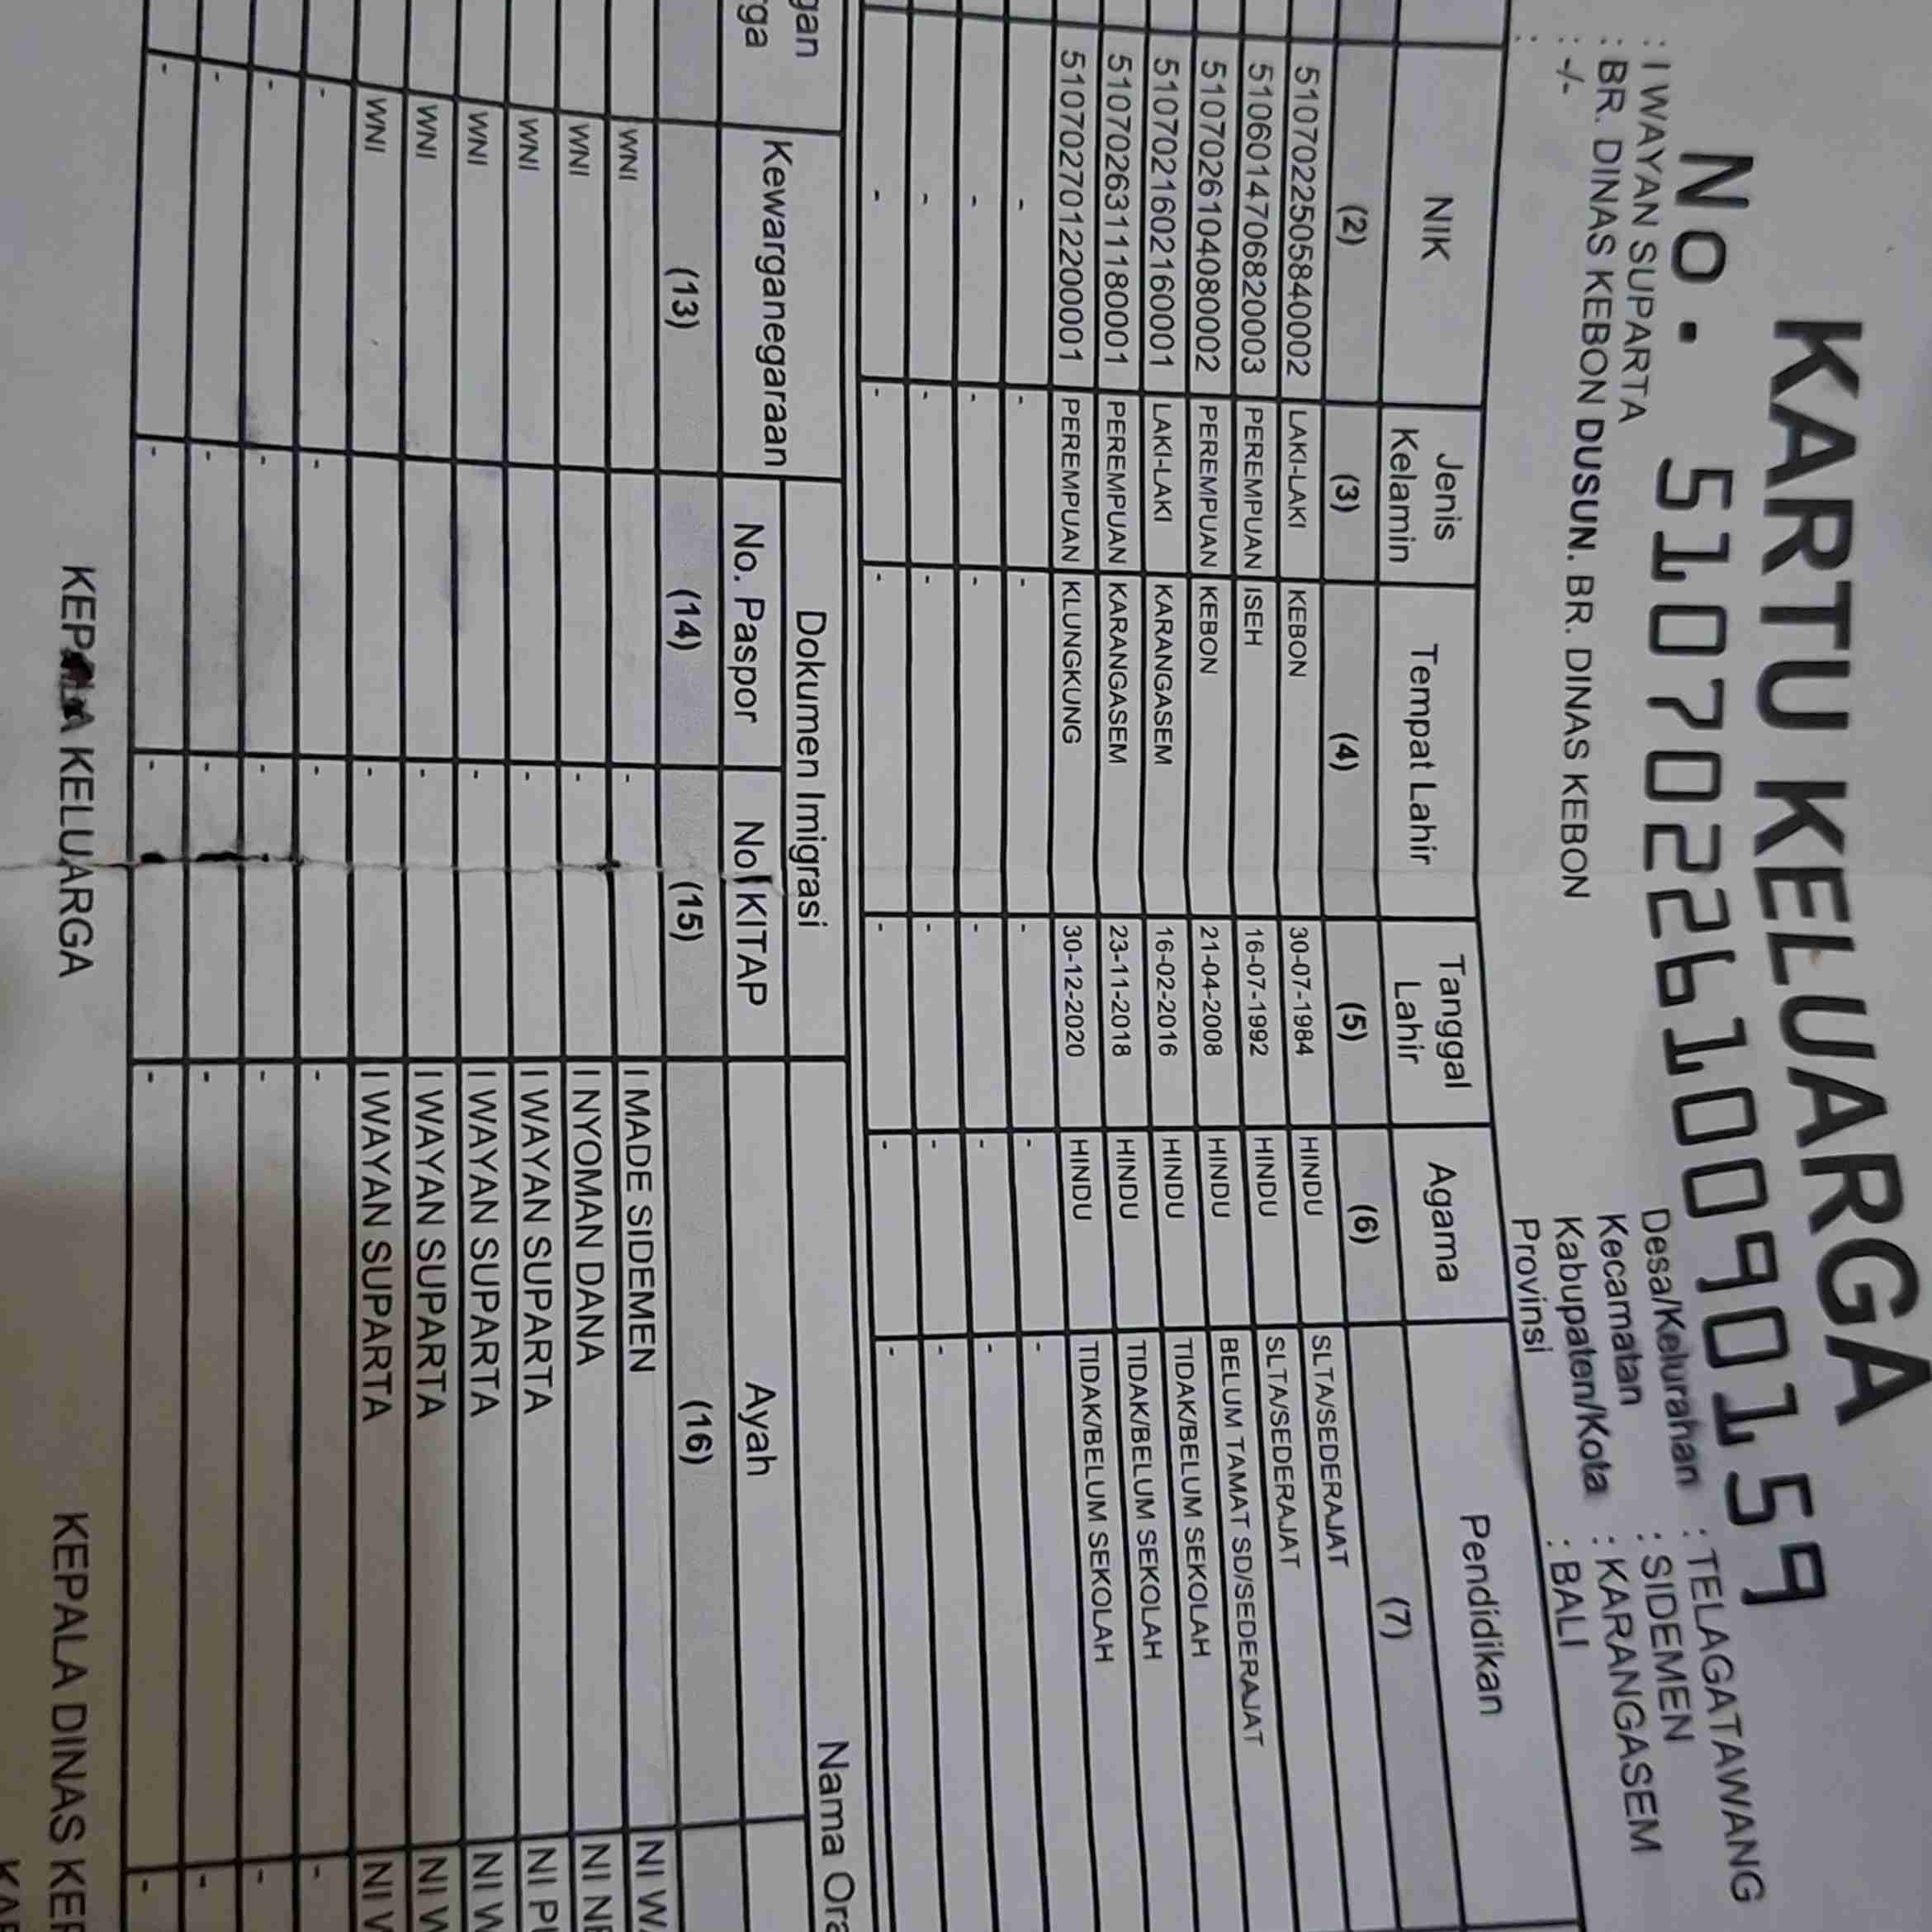 KARTU KELUARGA
No. 5107022610090159
: I WAYAN SUPARTA
: BR. DINAS KEBON DUSUN. BR. DINAS KEBON
: -/-
:
Desa/Kelurahan : TELAGATAWANG
Kecamatan : SIDEMEN
Kabupaten/Kota : KARANGASEM
Provinsi : BALI
NIK Jenis Kelamin Tempat Lahir Tanggal Lahir Agama Pendidikan
(2) (3) (4) (5) (6) (7)
5107022505840002 LAKI-LAKI KEBON 30-07-1984 HINDU SLTA/SEDERAJAT
5106014706820003 PEREMPUAN ISEH 16-07-1992 HINDU SLTA/SEDERAJAT
5107026104080002 PEREMPUAN KEBON 21-04-2008 HINDU BELUM TAMAT SD/SEDERAJAT
5107021602160001 LAKI-LAKI KARANGASEM 16-02-2016 HINDU TIDAK/BELUM SEKOLAH
5107026311180001 PEREMPUAN KARANGASEM 23-11-2018 HINDU TIDAK/BELUM SEKOLAH
5107027012200001 PEREMPUAN KLUNGKUNG 30-12-2020 HINDU TIDAK/BELUM SEKOLAH
- - - - - -
- - - - - -
- - - - - -
- - - - - -
gan
rga
Kewarganegaraan Dokumen Imigrasi Nama Ora
No. Paspor No. KITAP Ayah
(13) (14) (15) (16)
WNI - I MADE SIDEMEN NI WA
WNI - I NYOMAN DANA NI NE
WNI - I WAYAN SUPARTA NI PU
WNI - I WAYAN SUPARTA NI W
WNI - I WAYAN SUPARTA NI W
WNI - I WAYAN SUPARTA NI W
- - - - -
- - - - -
- - - - -
- - - - -
KEPALA KELUARGA
KEPALA DINAS KEP
KAB